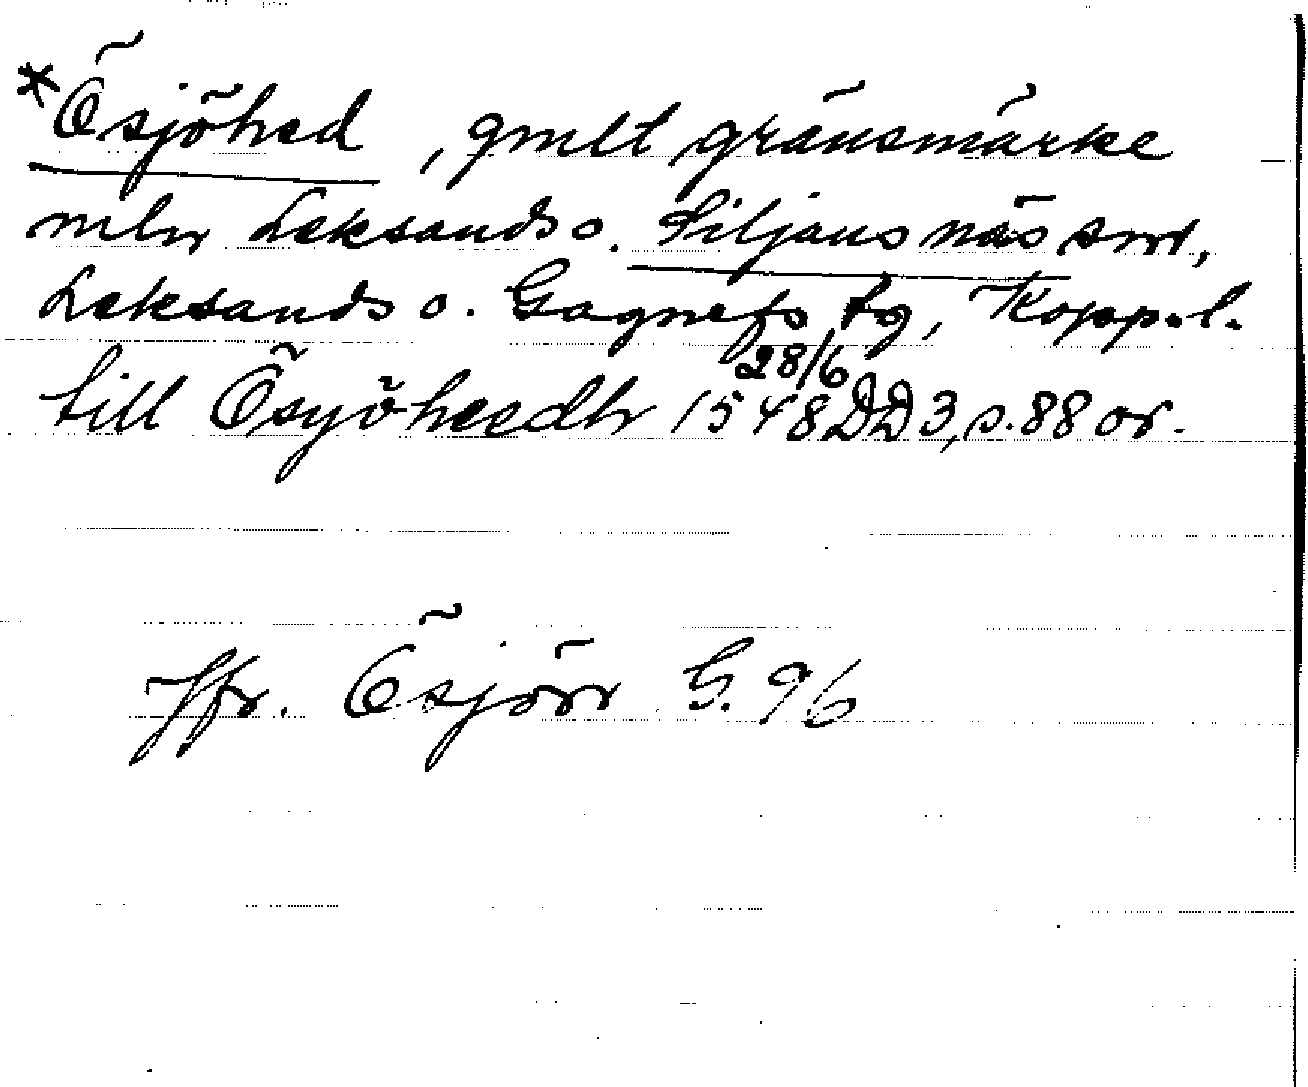 *Ösjöhed, gmlt gränsmärke
mln Leksands o. Siljansnäs snr,
Leksands o. Gagnefs tg, Kopp.l.
till Ösyöheedh 28/6 1548 DD 3, s. 88 or.
Jfr. Ösjön G. 96